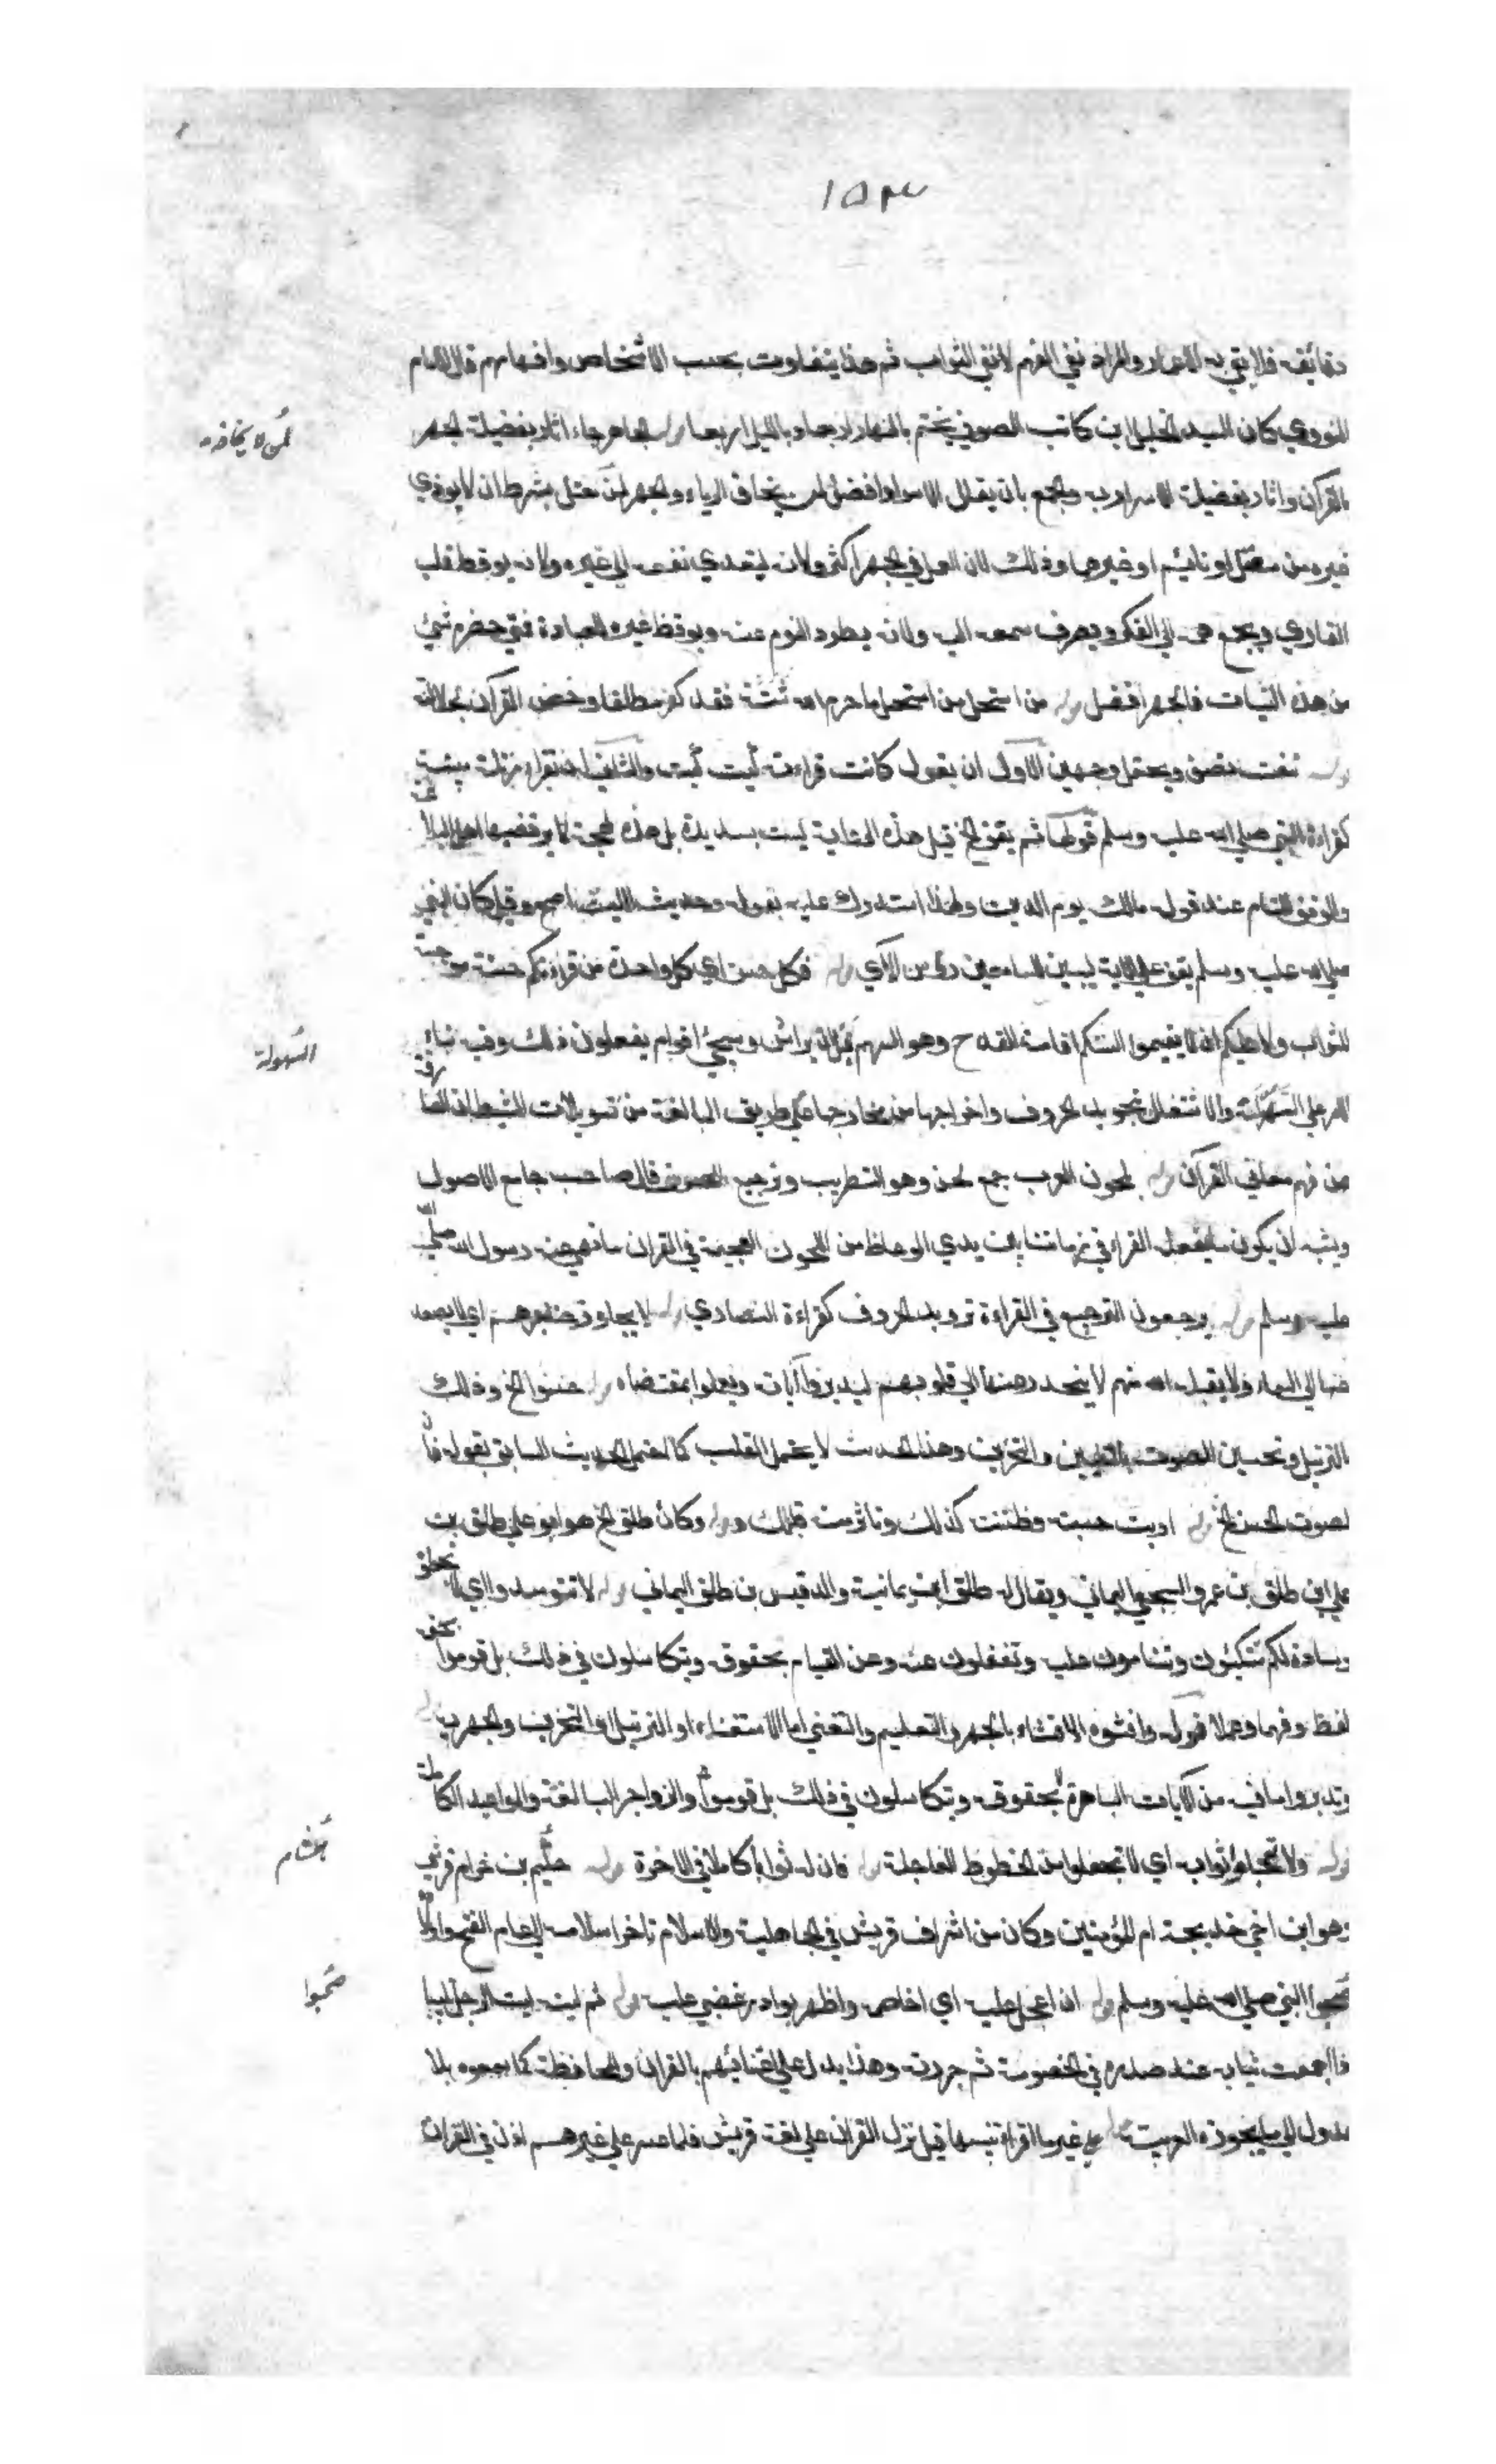 ١٥٣
دقائقه فلا يفي به الاعمار والمراد نفي الفهم لا نفي الثواب ثم هذا يتفاوت بحسب الاشخاص وافهامهم قال الامام
النووي كان السيد الجليل ابن كاتب الصوفي يختم بالنهار اربعا وبالليل اربعا قوله الجاهر جاء اثار بفضيلة الجهر
لمن لا يخافه
بالقرآن واثار بفضيلة الاسرار به والجمع بان يقال الاسرار افضل لمن يخاف الرياء والجهر بشرط ان لا يوذي
غيره من مصل او نائم او غيرهما وذلك لان العمل في الجهر اكثر ولانه يتعدي نفعه الي غيره ولانه يوقظ قلب
القاري ويجمع همه الي الفكر ويصرف سمعه اليه ولانه يطرد النوم عنه ويوقظ غيره للعبادة فمتي حضره شئ
من هذه النيات فالجهر افضل قوله من استحل من استحل ما حرم الله فقد كفر مطلقا وخص القرآن لجلالته
قوله نعت تصف ويحتمل وجهين الاول ان يقول كانت قراءته كيت كيت والثاني ان تقراء مرتلة مبينة
كقراءة النبي صلي الله عليه وسلم قولها ثم يقف الخ قيل هذه الرواية ليست بسديدة بل هذه لهجة لا يرتضيها اهل البلاغة
والوقف التام عند قوله مالك يوم الدين ولهذا استدرك عليه بقوله وحديث الليث اصح وقيل كان النبي
صلي الله عليه وسلم يقف علي الاية ليبين للسامعين رؤس الآي قوله فكل حسن اي كل واحدة من قراءتكم حسنة مرجية
للثواب ولا عليكم ان لا تقيموا السنتكم اقامة القدح وهو السهم قبل ان يراش وسيجئ اقوام يفعلون ذلك وفيه بناء
السهولة
الامر علي والاشتغال بتجويد الحروف واخراجها من مخارجها علي طريق المبالغة من تسويلات الشيطان الصارفة
عن فهم معاني القرآن قوله لحون العرب جمع لحن وهو التطريب وترجيع الصوت قال صاحب جامع الاصول
ويشبه ان يكون ما يفعله القراء في زماننا بين يدي الوعاظ من اللحون العجمية في القران ما نهي عنه رسول الله صلي الله
عليه وسلم قوله يرجعون الترجيع في القراءة ترديد الحروف كقراءة النصاري قوله لا يجاوز حناجرهم اي لا يصعد
عنها الي السماء ولا يقبل الله منهم لا ينحدر عنها الي قلوبهم ليدبروا آياته ويعملوا بمقتضاه قوله حسنوا الخ وذلك
بالترتيل وتحسين الصوت بالتليين والتحزين وهذا الحديث لا يحتمل القلب كما احتمل الحديث السابق لقوله فان
لصوت الحسن الخ قوله اريت حسبته وظننت كذلك وتاثرت قلبك قوله وكان طلق الخ هو ابو علي طلق بن
علي ابن طلق بن عمرو السحيمي اليماني ويقال له طلق ابن يمانية والد قيس بن طلق اليماني قوله لا تتوسدوا اي لا تجعلوه
وسادة لكم تتكئون وتنامون عليه وتغفلون عنه وعن القيام بحقوقه وتتكاسلون في ذلك بل قوموا بحقه
لفظا وفهما وعملا قوله وافشوه الافشاء بالجهر والتعليم والتغني اما الاستغناء او الترتيل او التحزين والجهر به قوله
وتدبروا ما فيه من الآيات الباهرة بحقوقه وتتكاسلون في ذلك بل قوموا والزواجر البالغة والمواعيد الكاملة
قوله ولا تعجلوا ثوابه اي لا تجعلوا من الحظوظ العاجلة قوله فان له ثوابا كاملا في الاخرة قوله حكيم بن خرام قرشي
هشام
وهو ابن اخي خديجة ام المؤمنين وكان من اشراف قريش في الجاهلية والاسلام تاخر اسلامه الي عام الفتح
صحبوا
صحبوا النبي صلي الله عليه وسلم قوله ان اعجل عليه اي اخاصمه واظهر بوادر غضبي عليه قوله ثم لبت لبت الرجل تلبيبا
اذا جمعت ثيابه عند صدره في الخصومة ثم جررته وهذا يدل علي اعتنائهم بالقران والمحافظة كما سمعوه بلا
عدول الي ما يجوزه العربية قوله علي غير ما اقراءتنيها قيل نزل القران علي لغة قريش فلما عسر علي غيرهم اذن في القران